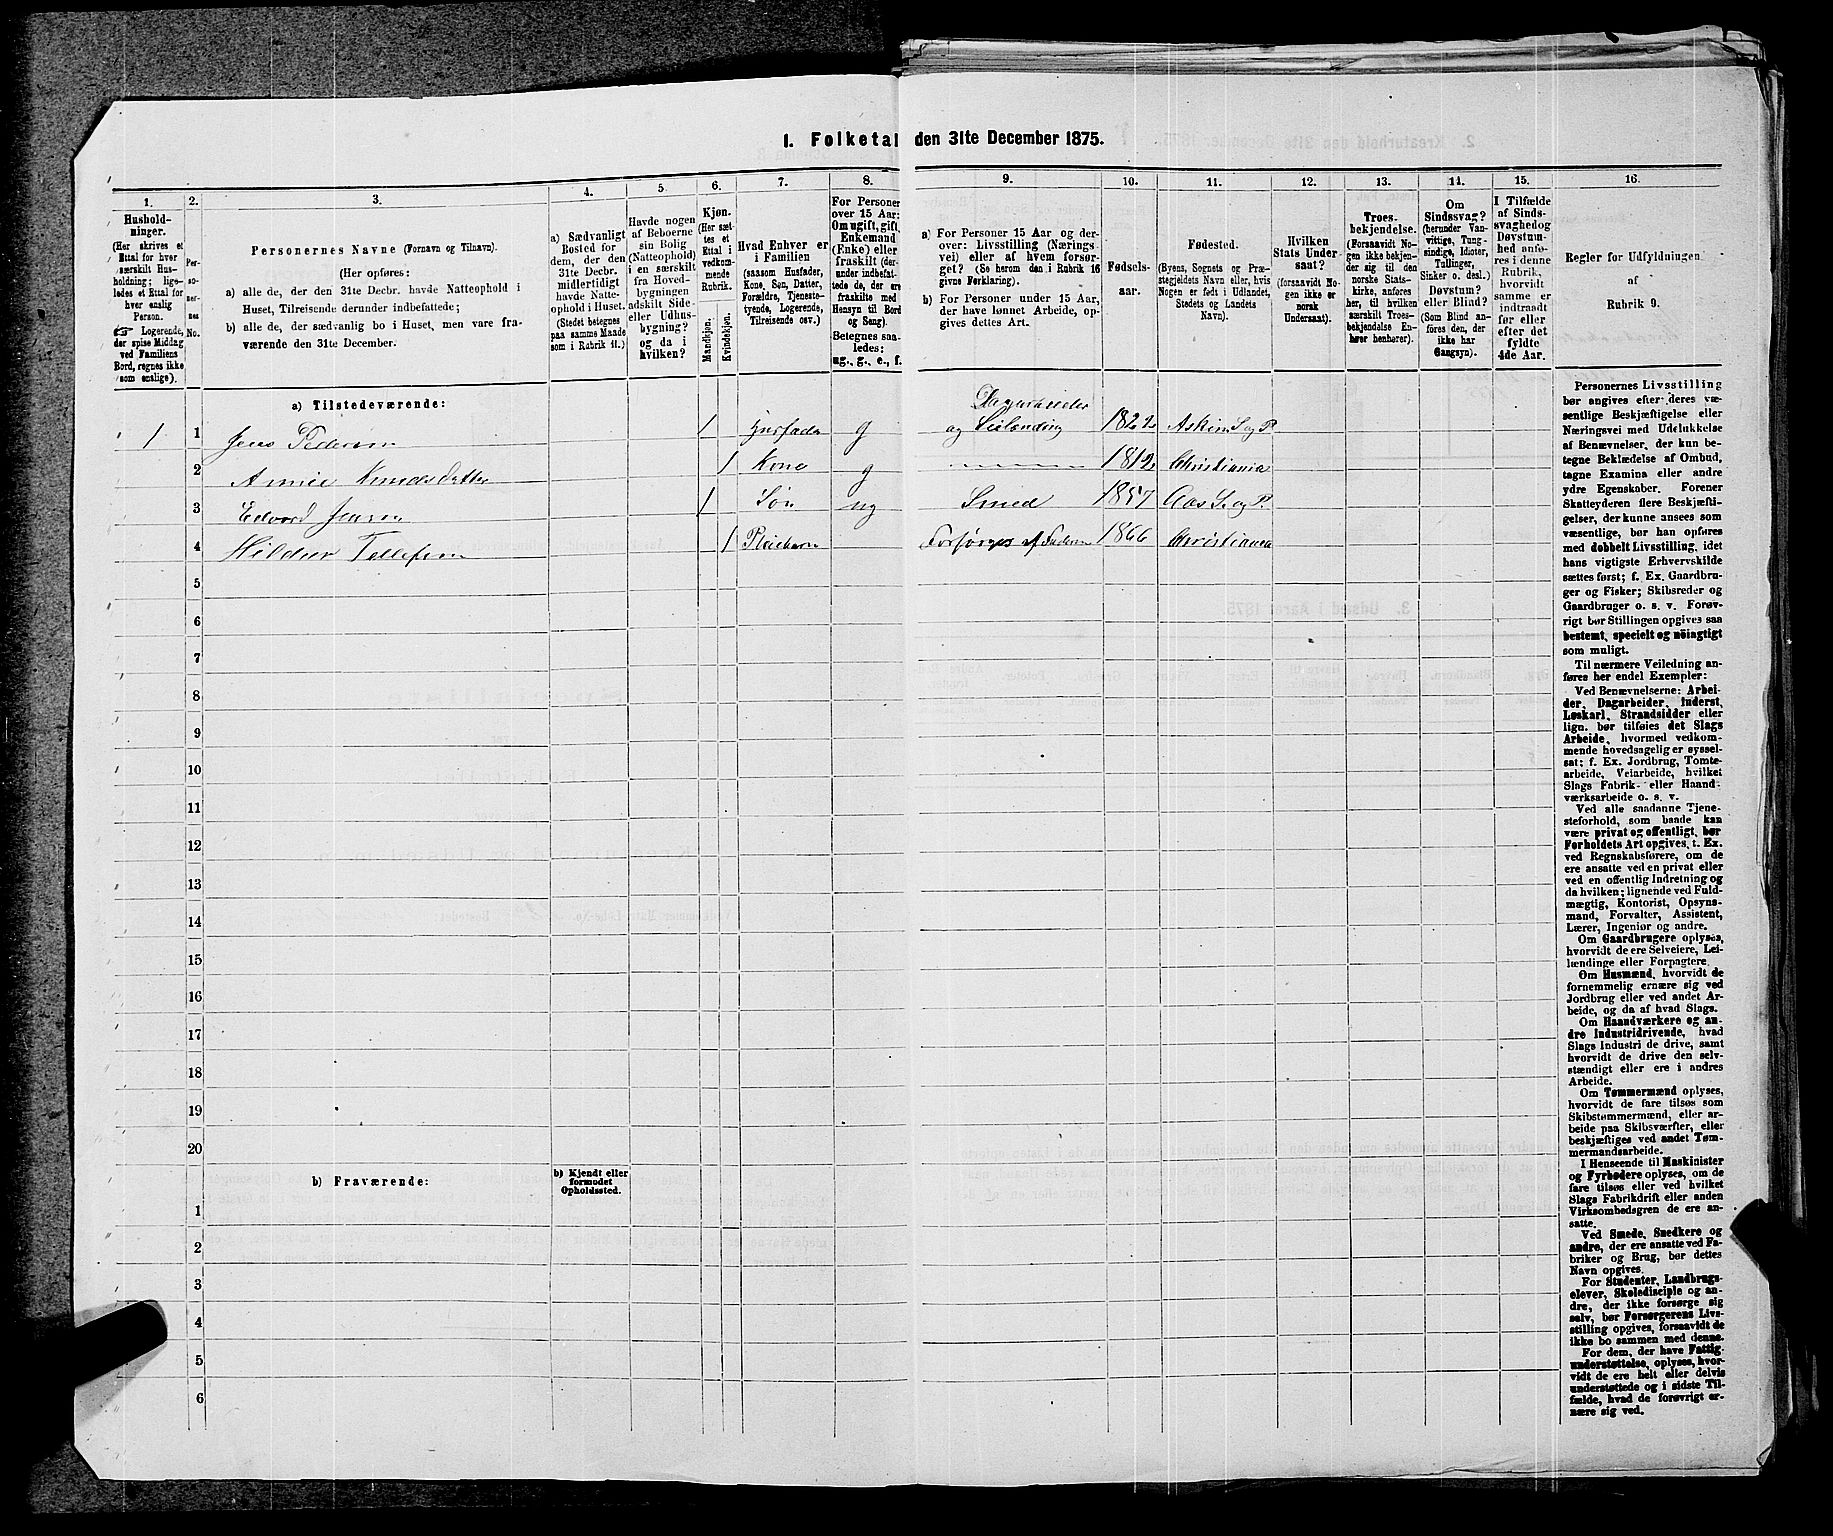 1. Folketal den 31te December 1875.
1. 2. 3. 4. 5. 6. 7. 8. 9. 10. 11. 12. 13. 14. 15. 16.
Hushold-
ninger.
(Her skrives et
Ettal for hver
særskilt Hus-
holdning; lige-
ledes et Ettal for
hver enslig
Person.
☞ Logerende,
der spise Middag
ved Familiens
Bord, regnes ikke
som enslige).
Per-
so-
ner-
nes
No.
Personernes Navne (Fornavn og Tilnavn).
(Her opføres:
a) alle de, der den 31te Decbr. havde Natteophold i
Huset, Tilreisende derunder indbefattede;
b) alle de, der sædvanlig bo i Huset, men vare fra-
værende den 31te December.
a) Sædvanligt
Bosted for
dem, der den
31te Decbr.
midlertidigt
havde Natte-
ophold i Huset.
(Stedet betegnes
paa samme Maade
som i Rubrik 11.)
Havde nogen
af Beboerne
sin Bolig
(Natteophold)
i en særskilt
fra Hoved-
bygningen
adskilt Side-
eller Udhus-
bygning?
og da i
hvilken?
Kjøn.
(Her sæt-
tes et
Ettal i
vedkom-
mende
Rubrik.
Mandkjøn.
Kvindekjøn.
Hvad Enhver er
i Familien
(saasom Husfader,
Kone, Søn, Datter,
Forældre, Tjeneste-
tyende, Logerende,
Tilreisende osv.)
For Personer
over 15 Aar:
Om ugift, gift,
Enkemand
(Enke) eller
fraskilt (der-
under indbefat-
tede de, der ere
fraskilte med
Hensyn til Bord
og Seng).
Betegnes saa-
ledes:
ug., g., e., f.
a) For Personer 15 Aar og der-
over: Livsstilling (Nærings-
vei) eller af hvem forsør-
get? (Se herom den i Rubrik 16
givne Forklaring).
b) For Personer under 15 Aar,
der have lønnet Arbeide, op-
gives dettes Art.
Fødsels-
aar.
Fødested.
(Byens, Sognets og Præ-
stegjeldets Navn eller, hvis
Nogen er født i Udlandet,
Stedets og Landets
Navn).
Hvilken
Stats Under-
saat?
(forsaavidt No-
gen ikke er
norsk
Undersaat).
Troes-
bekjendelse.
(Forsaavidt No-
gen ikke bekjen-
der sig til den
norske Stats-
kirke, anføres
her, til hvilken
særskilt Troes-
bekjendelse En-
hver henhører).
Om
Sindssvag?
(herunder Van-
vittige, Tung-
sindige, Idioter,
Tullinger,
Sinker o. desl.)
Døvstum?
eller Blind?
(Som Blind an-
føres den, der
ikke har
Gangsyn).
I Tilfælde
af Sinds-
svaghed og
Døvstum-
hed anfø-
res i denne
Rubrik,
hvorvidt
samme er
indtraadt
før eller
efter det
fyldte
4de Aar.
Regler for Udfyldningen
af
Rubrik 9.
a) Tilstedeværende:
1 1 Jens Pedersen 1 Husfader g Dagarbeider
og Leilænding 1822 Askim S. og P.
2 Annie Knudsdatter 1 Kone g 1812 Christiania
3 Edvard Jensen 1 Søn ug Smed 1857 Aas S. og P.
4 Hildur Tellefsen 1 Pleiebarn Forsørges af Faderen 1866 Christiania
5
6
7
8
9
10
11
12
13
14
15
16
17
18
19
20
b) Fraværende:
b) Kjendt eller
formodet
Opholdssted.
1
2
3
4
5
6
Personernes Livsstilling
bør angives efter deres væ-
sentlige Beskjæftigelse eller
Næringsvei med Udelukkelse
af Benævnelser, der kun be-
tegne Beklædelse af Ombud,
tagne Examina eller andre
ydre Egenskaber. Forener
Skatteyderen flere Beskjæfti-
gelser, der kunne ansees som
væsentlige, bør han opføres
med dobbelt Livsstilling, idet
hans vigtigste Erhvervskilde
sættes først; f. Ex. Gaardbru-
ger og Fisker; Skibsreder og
Gaardbruger o. s. v. Forøv-
rigt bør Stillingen opgives saa
bestemt, specielt og nöiagtigt
som muligt.
Til nærmere Veiledning an-
føres her endel Exempler:
Ved Benævnelserne: Arbei-
der, Dagarbeider, Inderst,
Løskarl, Strandsidder eller
lign. bør tilføies det Slags
Arbeide, hvormed vedkom-
mende hovedsagelig er syssel-
sat; f. Ex. Jordbrug, Tomte-
arbeide, Veiarbeide, hvilket
Slags Fabrik- eller Haand
værksarbeide o. s. v.
Ved alle saadanne Tjene-
steforhold, som baade kan
være privat og offentligt, bør
Forholdets Art opgives, t. Ex.
ved Regnskabsførere, om de
ere ansatte ved en privat eller
ved en offentlig Indretning og
da hvilken; lignende ved Fuld-
mægtig, Kontorist, Opsyns-
mand, Forvalter, Assistent,
Lærer, Ingeniør og andre.
Om Gaardbrugere oplyses,
hvorvidt de ere Selveiere, Lei-
lændinge eller Forpagtere.
Om Husmænd, hvorvidt de
fornemmelig ernære sig ved
Jordbrug eller ved andet Ar-
beide, og da af hvad Slags.
Om Haandværkere og an-
dre Industridrivende, hvad
Slags Industri de drive, samt
hvorvidt de drive den selv-
stændigt eller ere i andres
Arbeide.
Om Tømmermænd oplyses,
hvorvidt de fare tilsøs som
Skibstømmermænd, eller ar-
beide paa Skibsværfter, eller
beskjæftiges ved andet Tøm-
mermandsarbeide.
I Henseende til Maskinister
og Fyrbødere oplyses, om de
fare tilsøs eller ved hvilket
Slags Fabrikdrift eller anden
Virksombedsgren de ere an-
satte.
Ved Smede, Snedkere og
andre, der ere ansatte ved Fa-
briker og Brug, bør dettes
Navn opgives.
For Studenter, Landbrugs-
elever, Skoledisciple og an-
dre, der ikke forsørge sig
selv, bør Forsørgerens Livs-
stilling opgives, forsaavidt de
ikke bo sammen med denne.
For dem, der have Fattig-
understøttelse, oplyses, hvor-
vidt de ere helt eller delvis
understøttede og i sidste Til-
fælde, hvad de forøvrigt er-
nære sig ved.